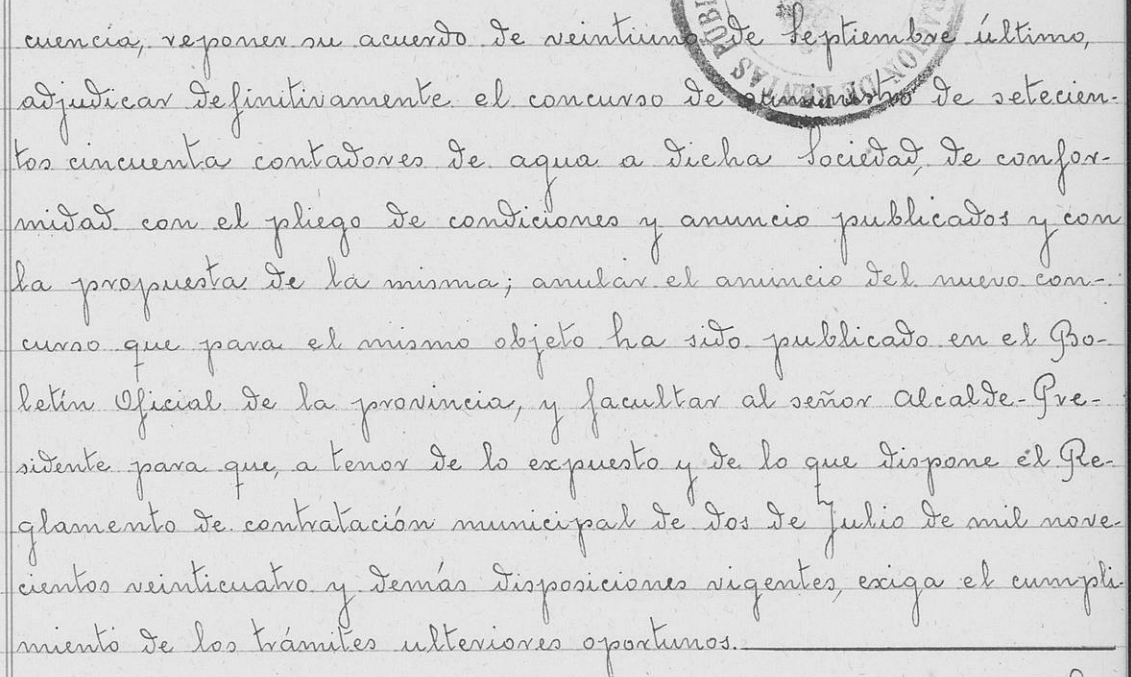 cuencia, reponer su acuerdo de veintiuno de Septiembre último,
adjudicar definitivamente el concurso de suministro de setecien-
tos cincuenta contadores de agua a dicha Sociedad, de confor-
midad con el pliego de condiciones y anuncio publicados y con
la propuesta de la misma; anular el anuncio del nuevo con-
curso que para el mismo objeto ha sido publicado en el Bo-
letín Oficial de la provincia, y facultar al señor Alcalde-Pre-
sidente para que, a tenor de lo expuesto y de lo que dispone el Re-
glamento de contratación municipal de dos de Julio de mil nove-
cientos veinticuatro y demás disposiciones vigentes, exiga el cumpli-
miento de los trámites ulteriores oportunos.